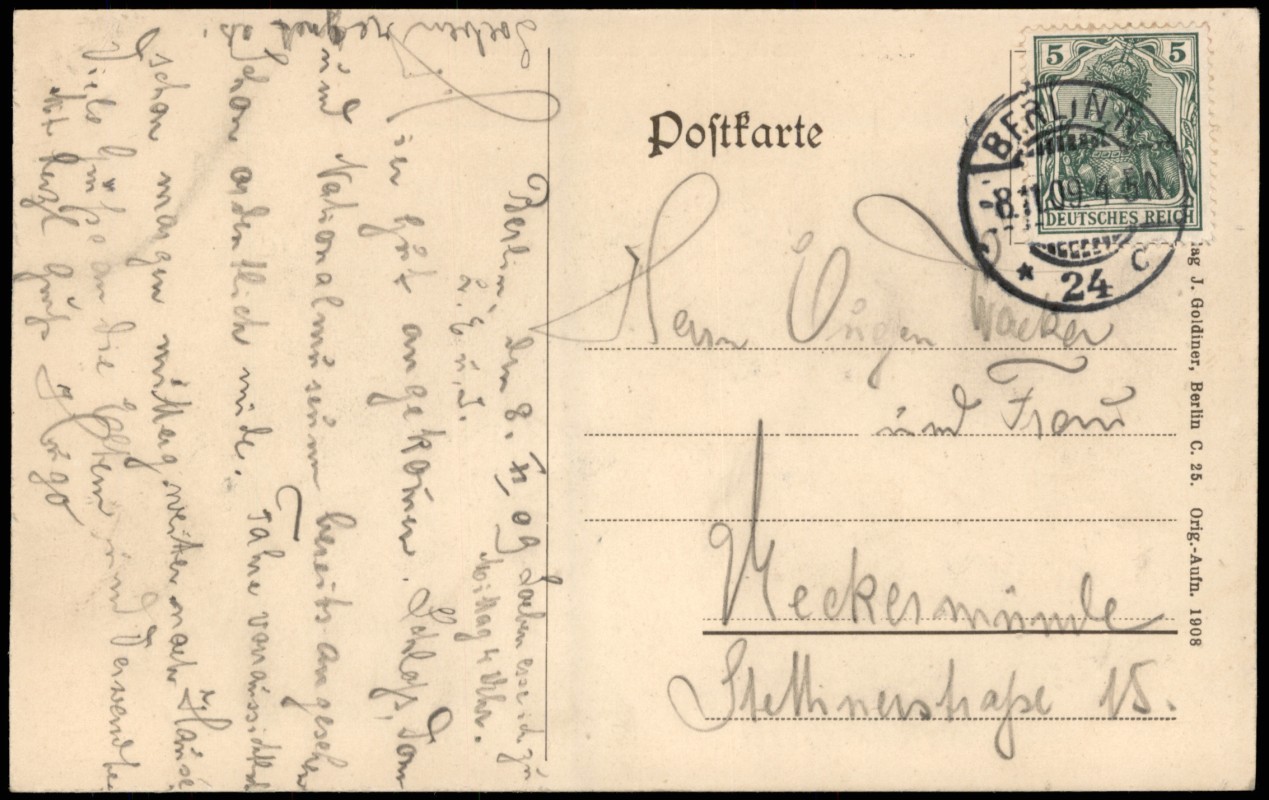 Postkarte
5 5
DEUTSCHES REICH
BERLIN N.
8.11.09 4-5N
* 24 c
Herrn Eugen Wacker
und Frau
Ueckermünde
Stettinerstraße 15.
lag J. Goldiner, Berlin C. 25. Orig.-Aufn. 1908
Soeben regnet
Berlin, den 8. XI 09
Soeben esse ich zu
Mittag 4 Uhr.
L. E. u. J.
Hier gut angekommen. Schloß, Dom
und Nationalmuseum bereits angesehen
Schon ordentlich müde.
Fahre voraussichtlich
schon morgen mittag weiter nach Hause
Viele Grüße an die Eltern und Verwandten
Mit herzl Gruß Hugo